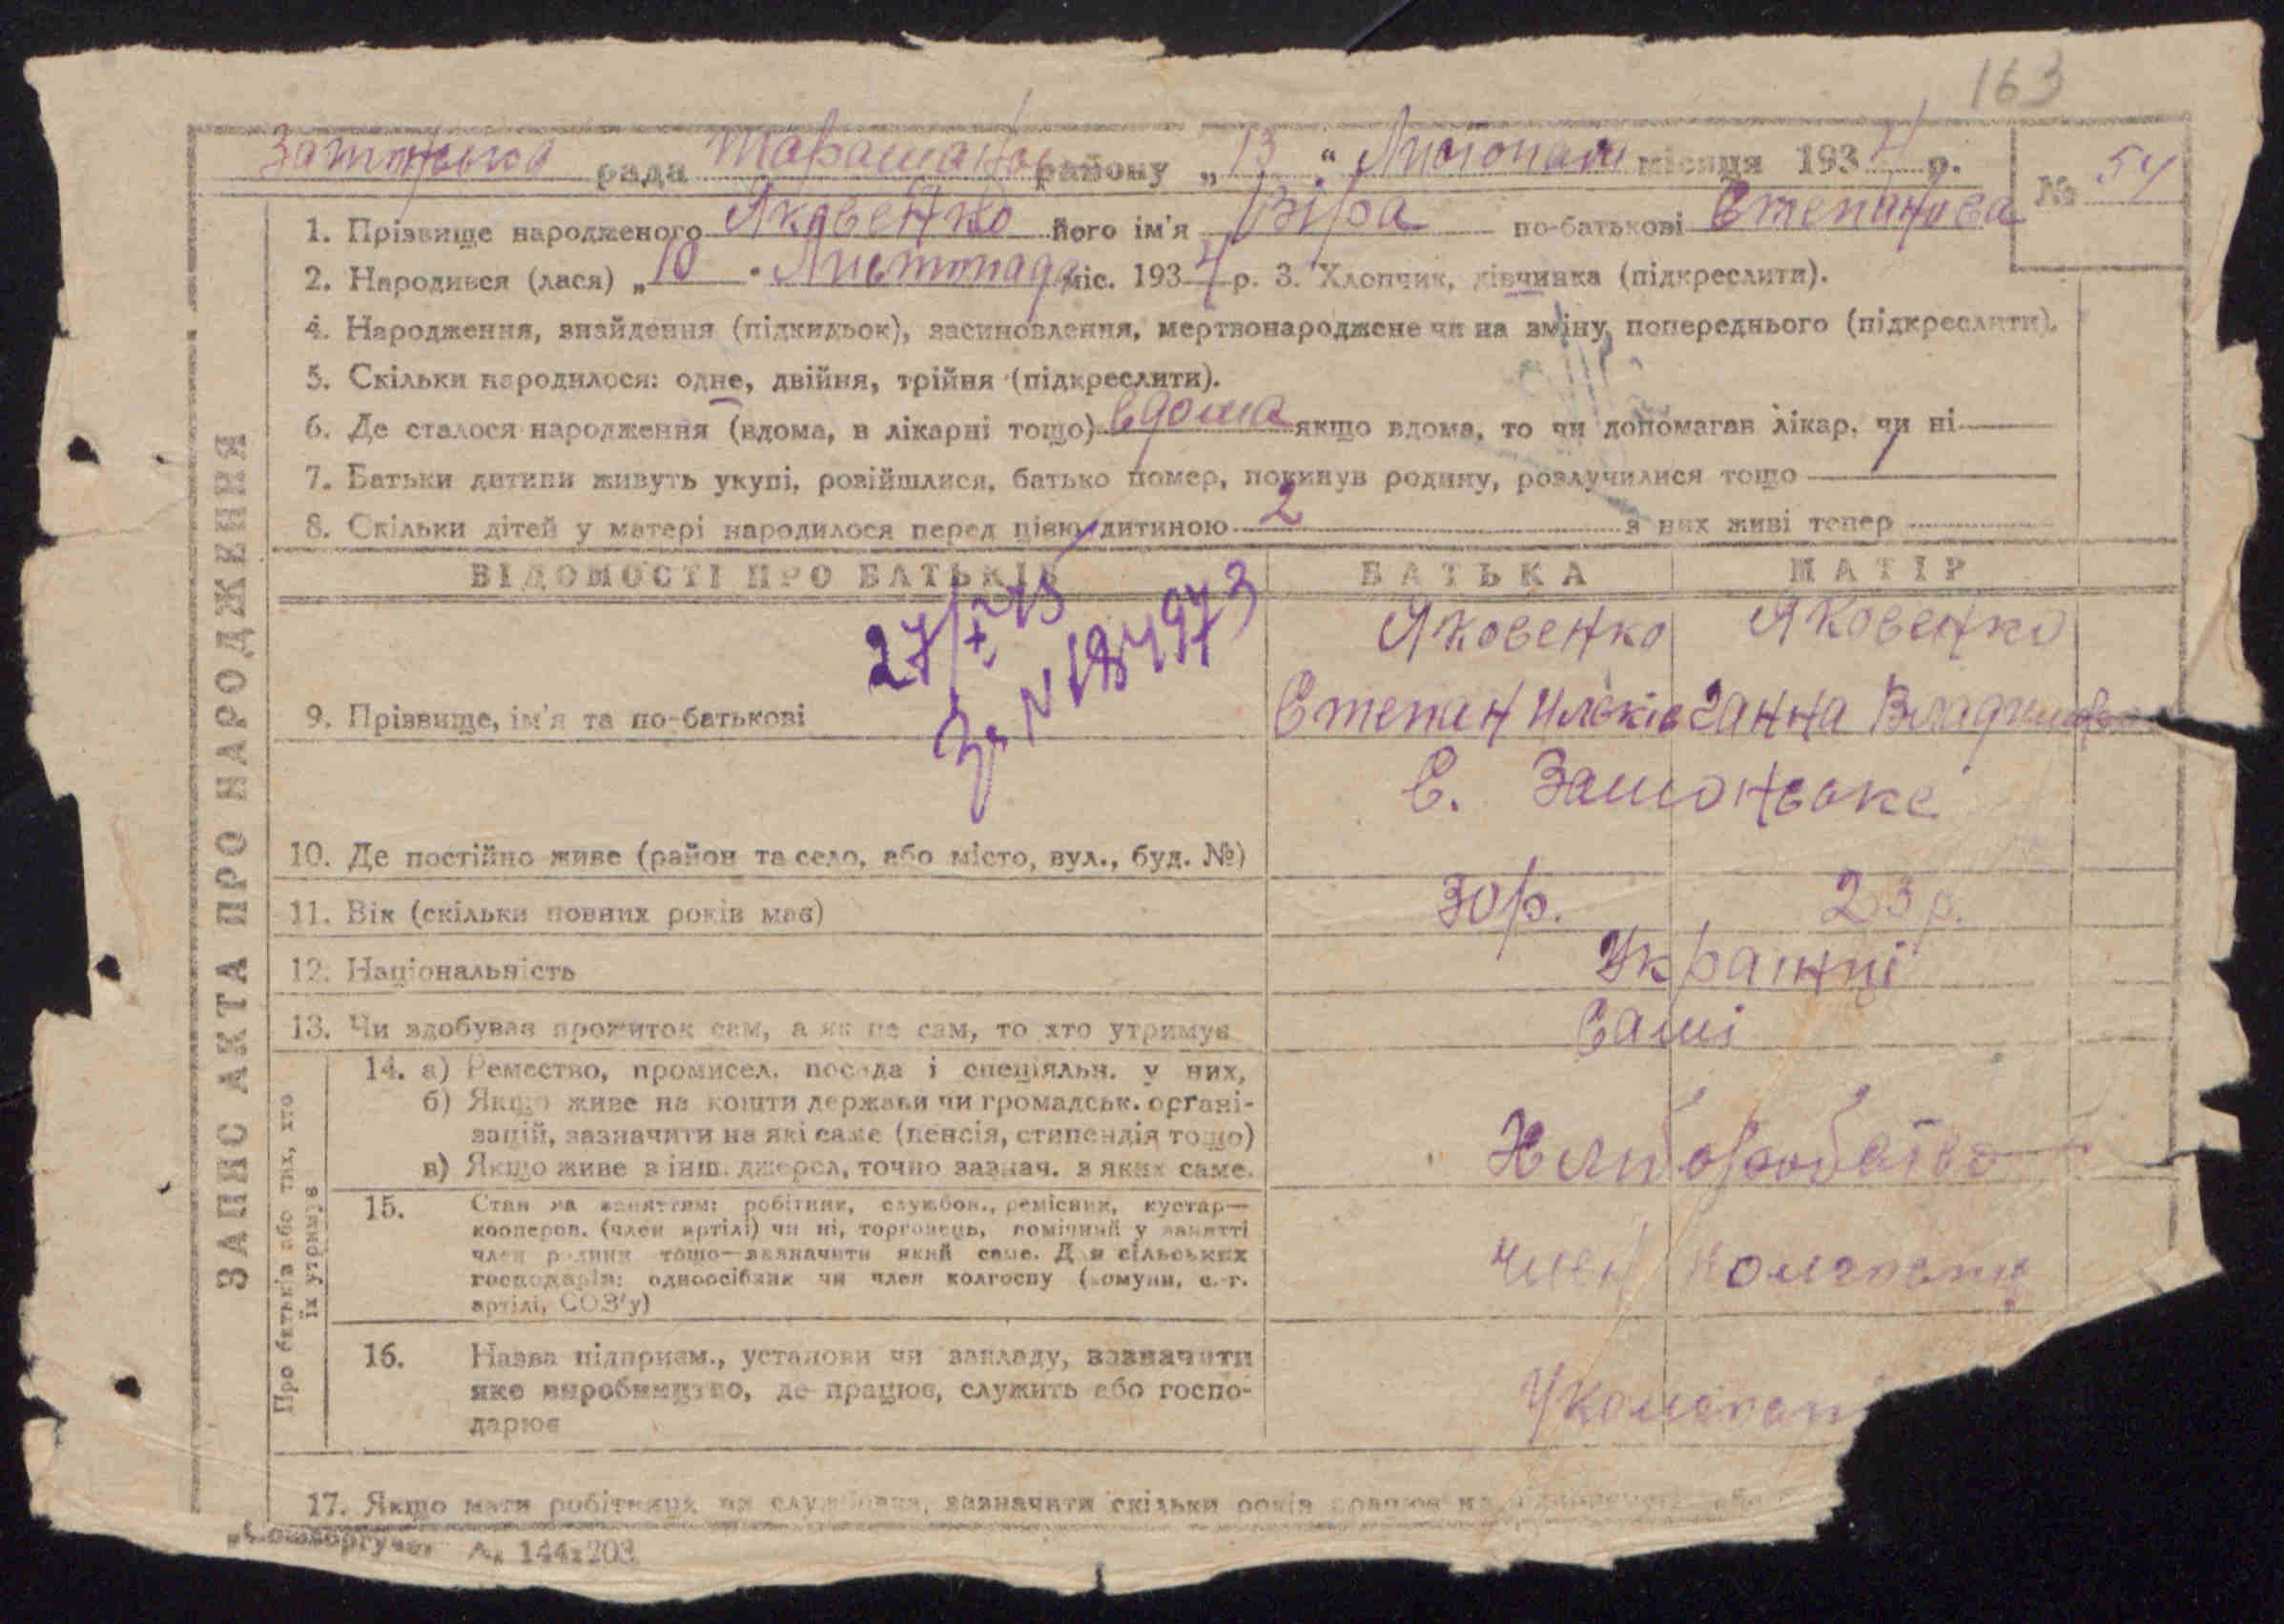 163
рада Тараща району „13“ Листопада місяця 1934 р. № 54
1. Прізвище народженого Яковенко його ім'я Віра по-батькові Степанова
2. Народився (лася) „10" Листопада міс. 1934 р. 3. Хлопчик, дівчинка (підкреслити).
4. Народження, знайдення (підкидьок), засиновлення, мертвонароджене чи на зміну попереднього (підкреслити).
5. Скільки народилося: одне, двійня, трійня (підкреслити).
6. Де сталося народження (вдома, в лікарні тощо) вдома якщо вдома, то чи допомагав лікар, чи ні
7. Батьки дитини живуть укупі, розійшлися, батько помер, покинув родину, розлучилися тощо
8. Скільки дітей у матері народилося перед цією дитиною 2 з них живі тепер
ВІДОМОСТІ ПРО БАТЬКІВ БАТЬКА МАТІР
Яковенко Яковенко
9. Прізвище, ім'я та по-батькові Степан Ганна
С.
10. Де постійно живе (район та село, або місто, вул., буд. №)
11. Вік (скільки повних років має) 30 р. 23 р.
12. Національність Українці
13. Чи здобуває прожиток сам, а як не сам, то хто утримує Самі
14. а) Ремество, промисел, посада і спеціяльн. у них,
б) Якщо живе на кошти держави чи громадськ. органі-
зацій, зазначити на які саме (пенсія, стипендія тощо)
в) Якщо живе з інш. джерел, точно зазнач. з яких саме. Хліборобство
15. Стан за заняттям: робітник, службов., ремісник, кустар—
кооперов. (член артілі) чи ні, торговець, помічний у занятті
член родини тощо—зазначити який саме. Для сільських
господарів: одноосібник чи член колгоспу (комуни, с.-г.
артілі, СОЗ'у) член колгоспу
16. Назва підприєм., установи чи закладу, зазначити
яке виробництво, де працює, служить або госпо-
дарює У колгоспі
17. Якщо мати робітниця чи службовка, зазначити скільки років працює на
А. 144x203
ЗАПИС АКТА ПРО НАРОДЖЕННЯ
Про батьків або тих, хто
їх утримує